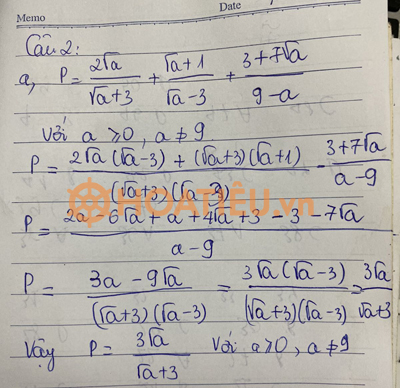 Memo Date
Câu 2:
a, P = 2√a/(√a+3) + (√a+1)/(√a-3) + (3+7√a)/(9-a)
Với a ≥ 0, a ≠ 9
P = (2√a(√a-3) + (√a+3)(√a+1))/((√a+3)(√a-3)) - (3+7√a)/(a-9)
P = (2a - 6√a + a + 4√a + 3 - 3 - 7√a)/(a-9)
P = (3a - 9√a)/((√a+3)(√a-3)) = 3√a(√a-3)/((√a+3)(√a-3)) = 3√a/(√a+3)
Vậy P = 3√a/(√a+3) với a ≥ 0, a ≠ 9
HOATIEU.vn